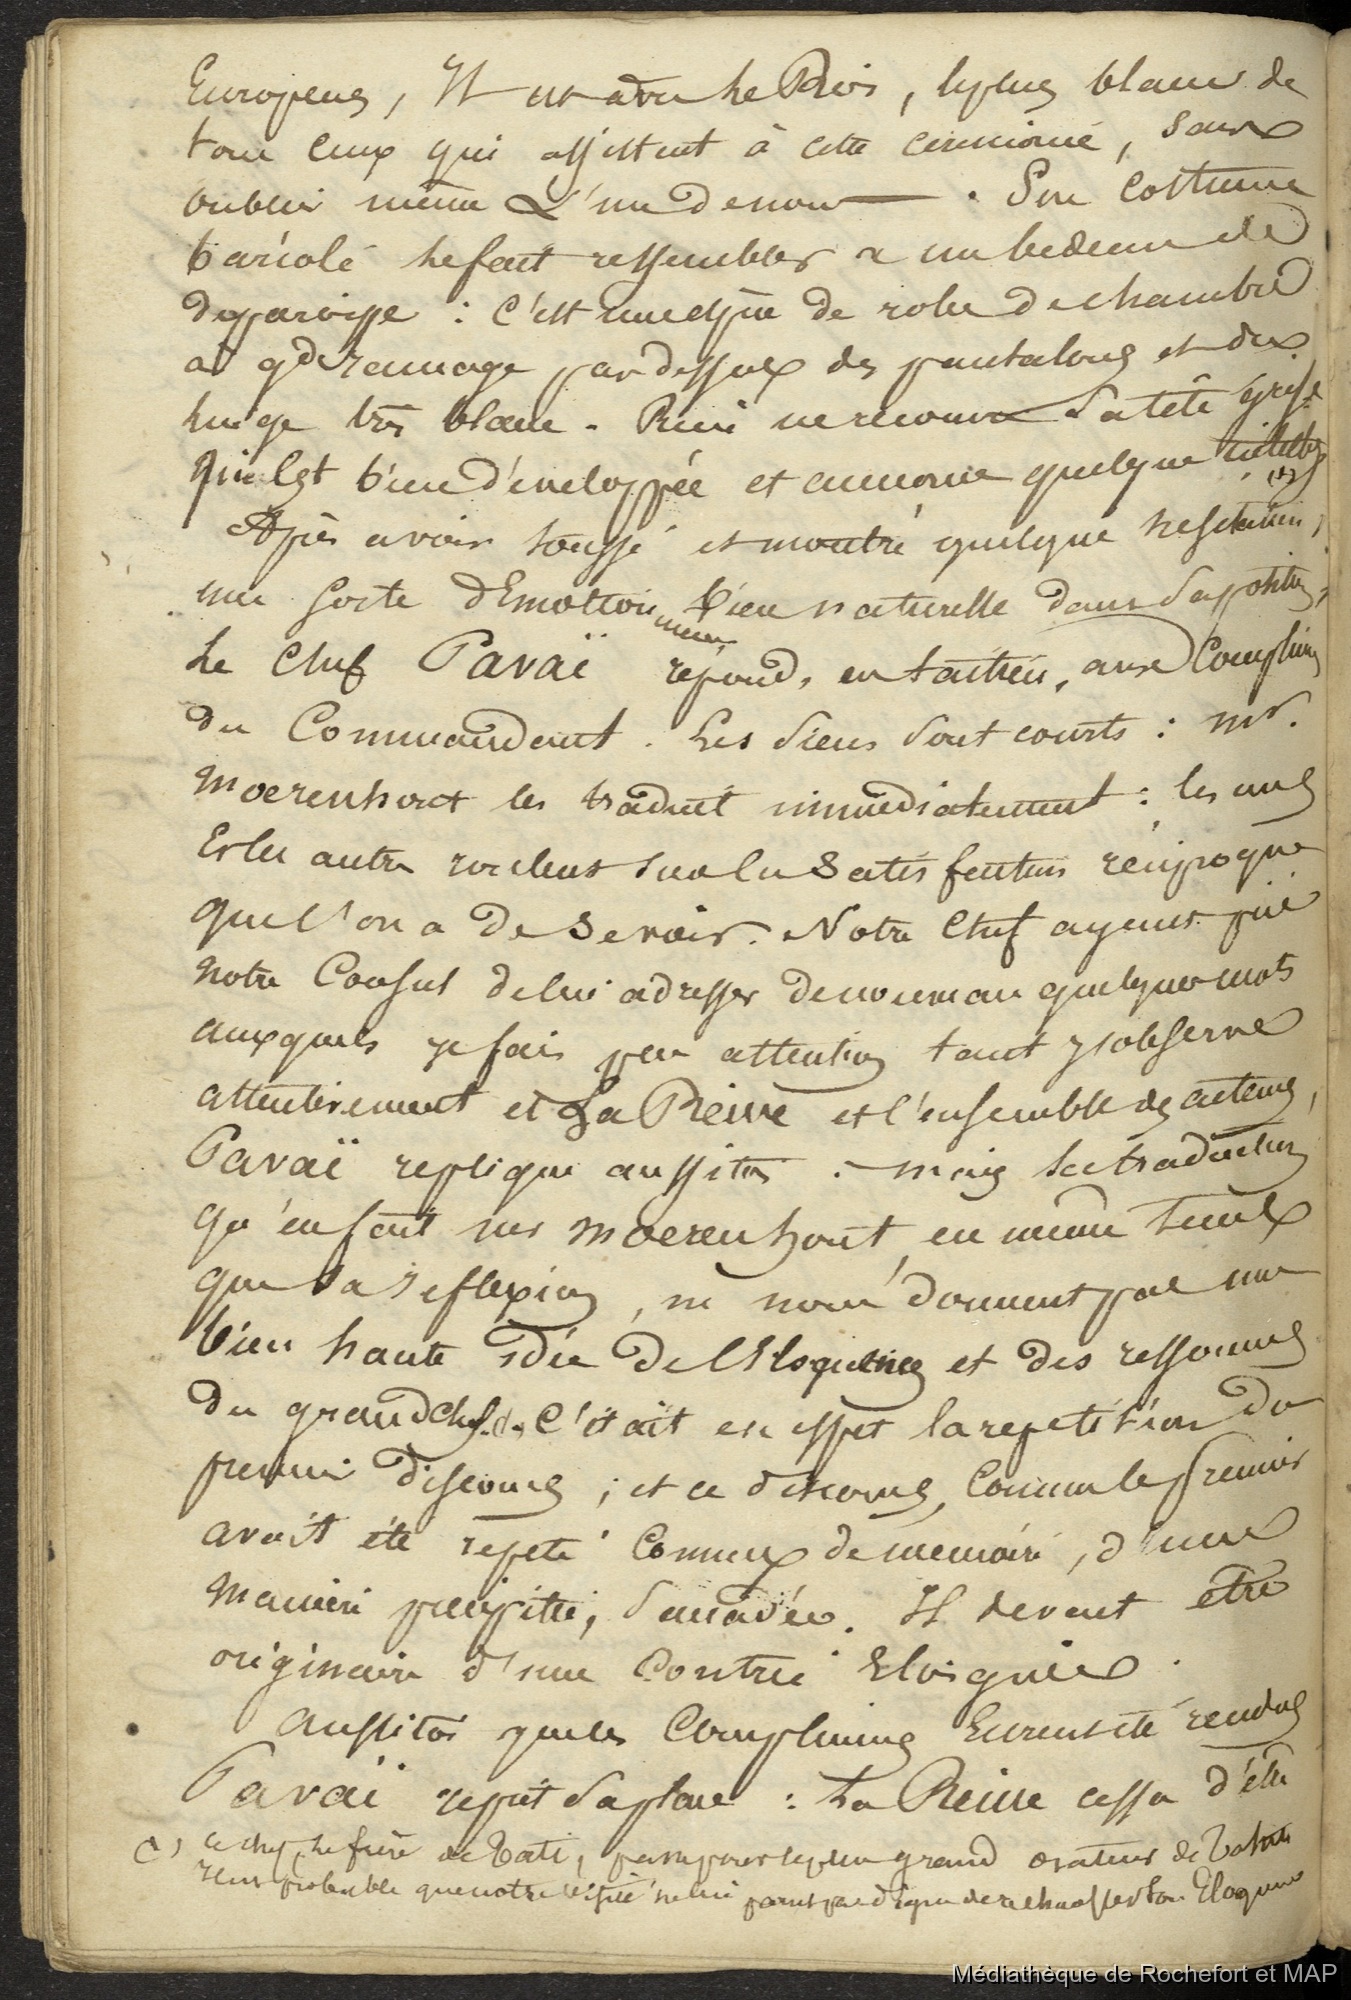 Européens, Il est avec le Roi, le plus blanc de
tous ceux qui assistent à cette cérémonie, sans
oublier même L'un de nous. Son costume
bariolé le fait ressembler a un bedeau de
de paroisse : C'est une espèce de robe de chambre
à gd ramage par dessus des pantalons et du
linge très blanc. Rien ne recouvre Sa tête grise
qui est bien développée et annonce quelque
Après avoir toussé et montré quelque hésitation,
une sorte d'Emotion bien naturelle dans Sa position,
Le Chef Pavaï répond, en taïtien, aux Complimens
du Commandant. Les Siens Sont courts : mr.
Moerenhout les traduit immédiatement : les uns
Et les autres roulent sur la Satisfaction réciproque
que l'on a de Se voir. Notre Chef ayant prié
notre Consul de lui adresser de nouveau quelques mots
auxquels je fais peu attention tant j'observe
attentivement et La Reine et l'ensemble des acteurs,
Pavaï replique aussitôt. Mais la traduction
qu'en fait mr Moerenhout, en même tems
que sa reflexion, ne nous donnent pas une
bien haute idée de l'Eloquence et des ressources
du grand Chef. (1) C'était en effet la repetition du
premier discours ; et ce discours, Comme le premier
avait été repeté Comme de mémoire, d'une
manière précipitée, Saccadée. Il devait être
originaire d'une Contrée Eloignée.
Aussitôt que les Complimens Eurent été rendus
Pavaï reprit Sa place : La Reine cessa d'être
(1) ce chef, le frère de Tati, passe pour le plus grand orateur de Tahiti
il est probable que notre visite ne lui parut pas digne de rechausser son Eloquence
Médiathèque de Rochefort et MAP